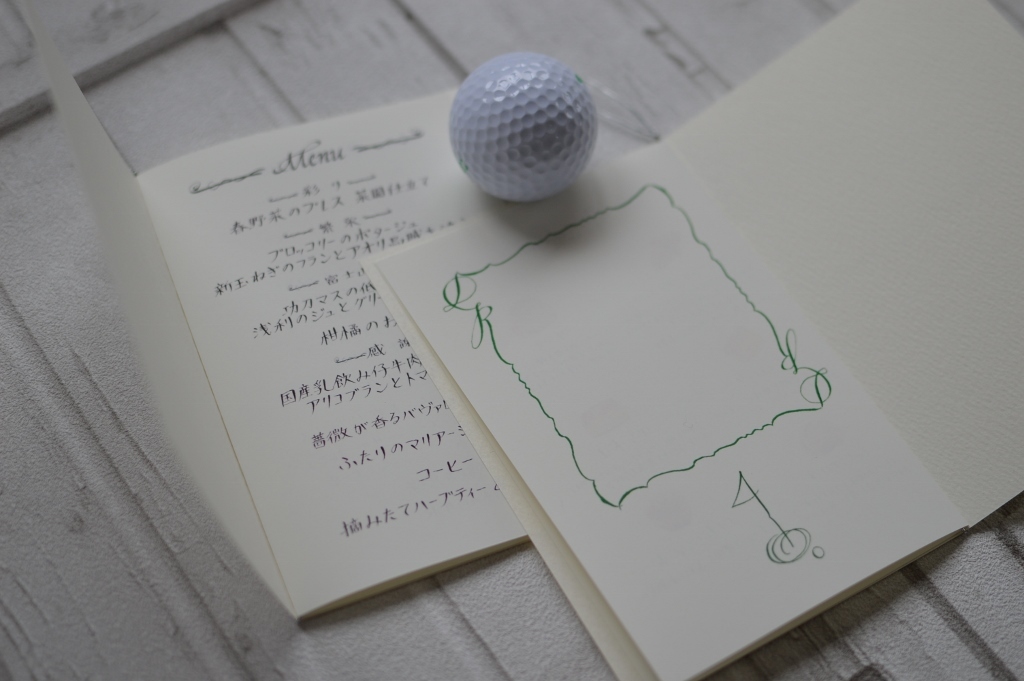 Menu
彩り
春野菜のアミューズ 菜園仕立て
繁栄
ブロッコリーのポタージュ
新玉ねぎのフランとアオリ烏賊
富士山
功刀マスの低
浅利のジュとグリー
柑橘のお
感 謝
国産乳飲み仔牛肉
アリコブランとトマ
薔薇が香るババヴァ
ふたりのマリアージ
コーヒー
摘みたてハーブティー
R